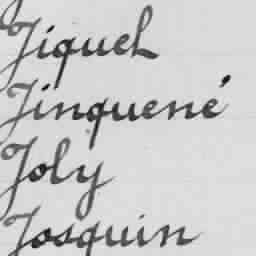 Jiquel
Jinquené
Joly
Josquin